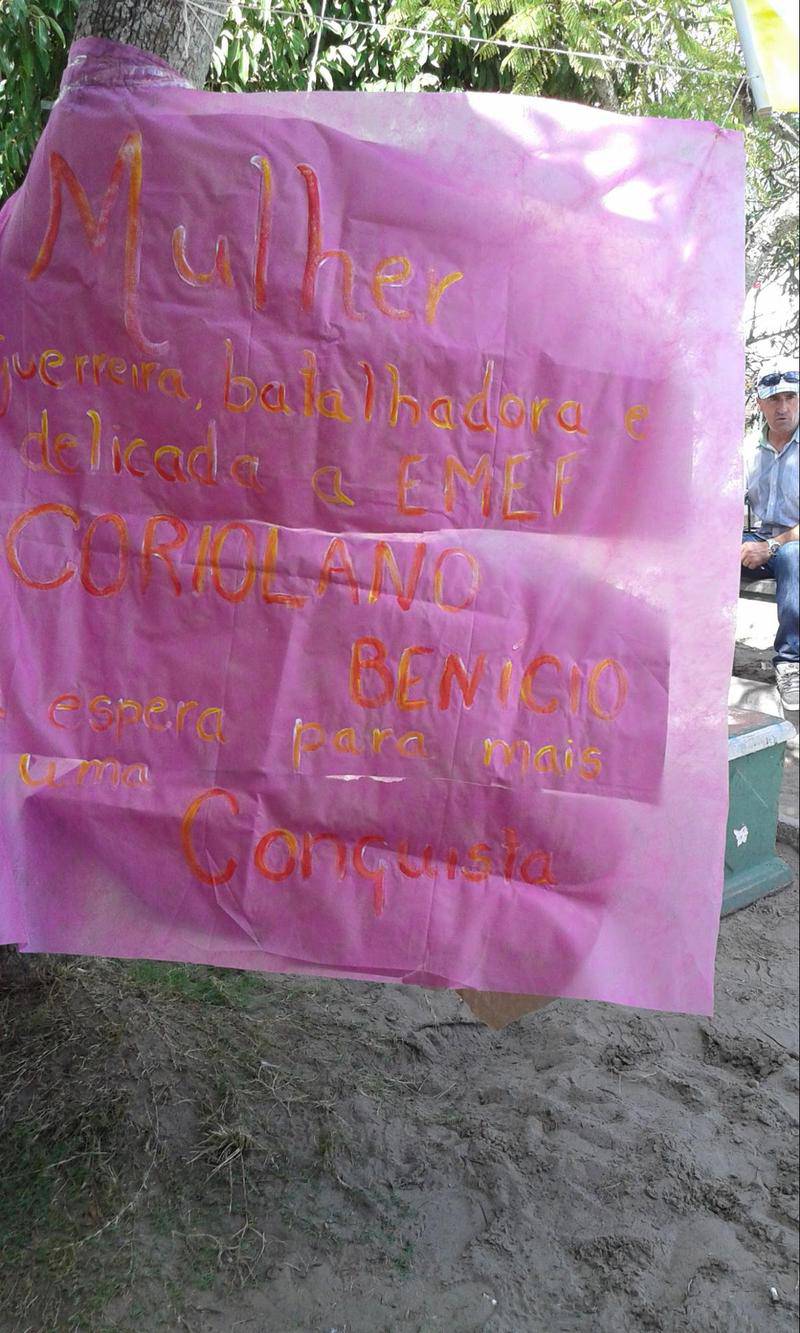 Mulher
guerreira, batalhadora e
delicada a EMEF
CORIOLANO
BENICIO
espera para mais
uma
Conquista